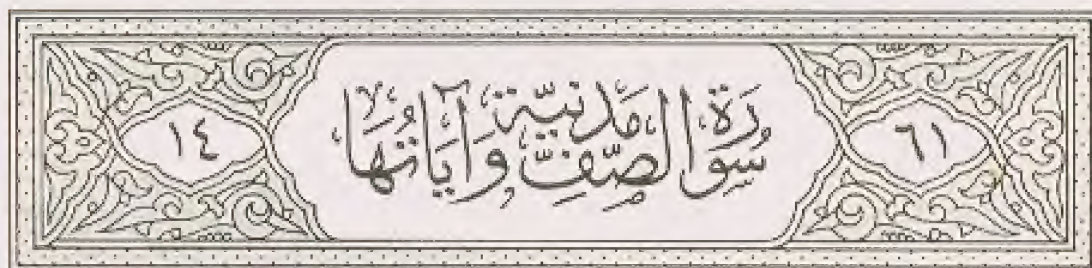 ٦١ سُورَةُ الصَّفِّ مَدَنِيَّة وَآيَاتُهَا ١٤